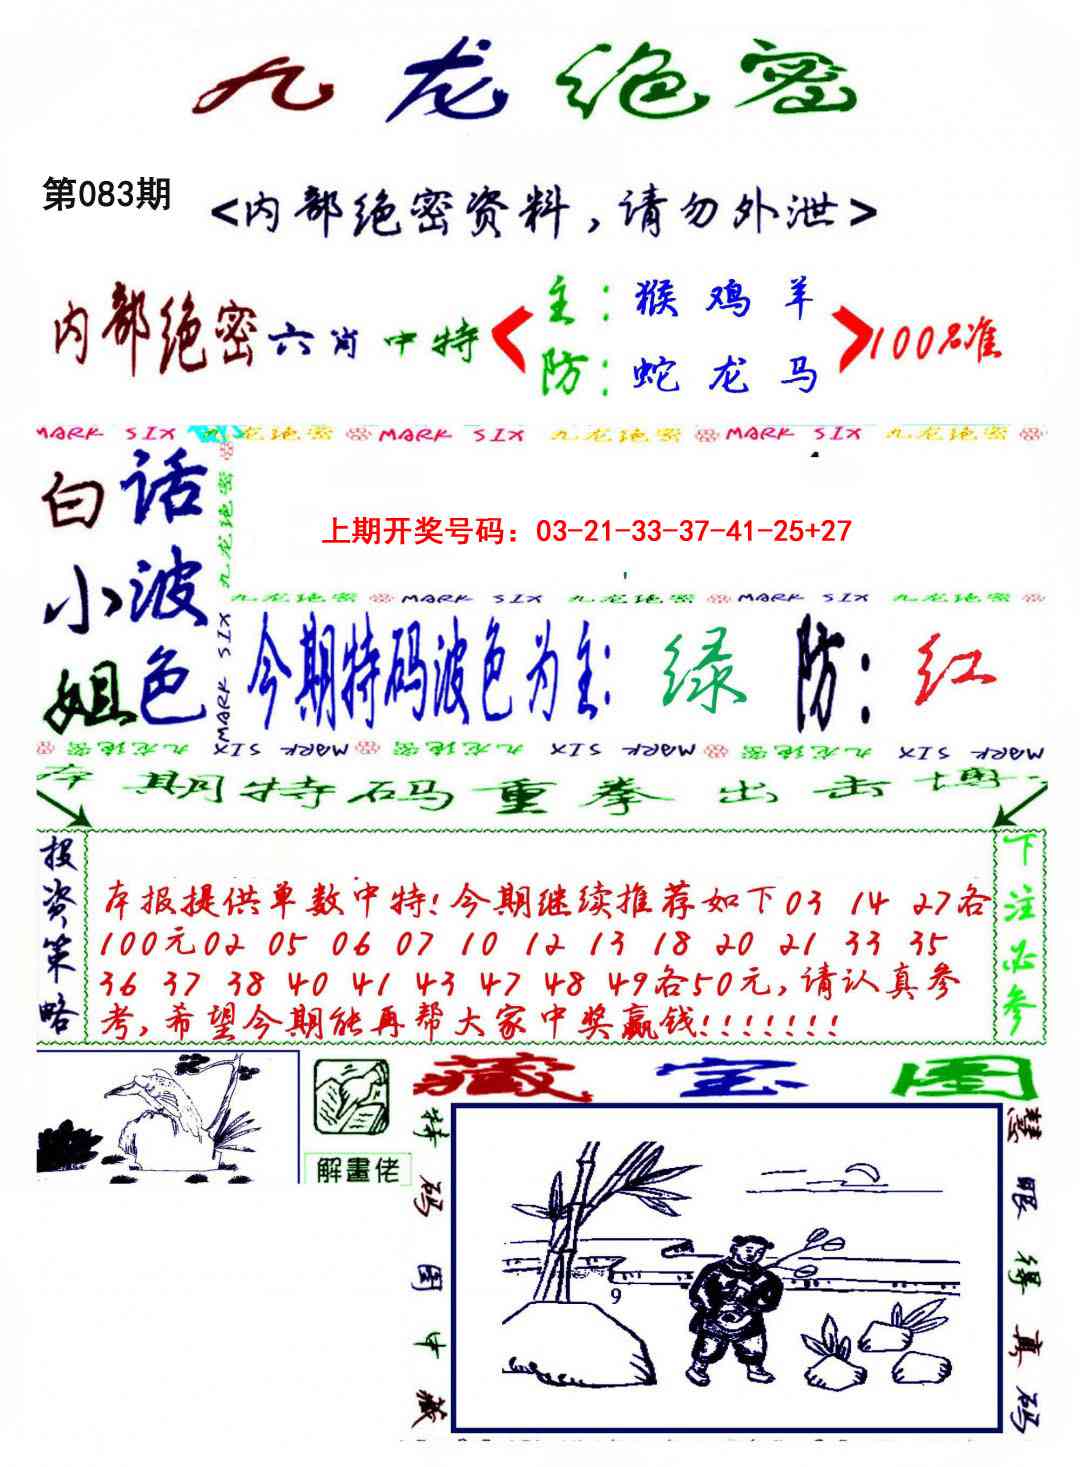 九龙绝密
第083期
<内部绝密资料，请勿外泄>
内部绝密六肖中特
主：猴 鸡 羊
防：蛇 龙 马
100%准
MARK SIX 九龙绝密 MARK SIX 九龙绝密 MARK SIX 九龙绝密
白话
小波
姐色
九龙绝密
MARK SIX
上期开奖号码：03-21-33-37-41-25+27
九龙绝密 MARK SIX 九龙绝密 MARK SIX 九龙绝密
今期特码波色为主：绿 防：红
九龙绝密 MARK SIX 九龙绝密 MARK SIX 九龙绝密 MARK SIX
本期特码重拳出击博
投资策略
本报提供单数中特!今期继续推荐如下03 14 27各
100元02 05 06 07 10 12 13 18 20 21 33 35
36 37 38 40 41 43 47 48 49各50元,请认真参
考,希望今期能再帮大家中奖赢钱!!!!!!!
下注必参
解畫佬
藏宝图
特码图中藏
9
慧眼得真码